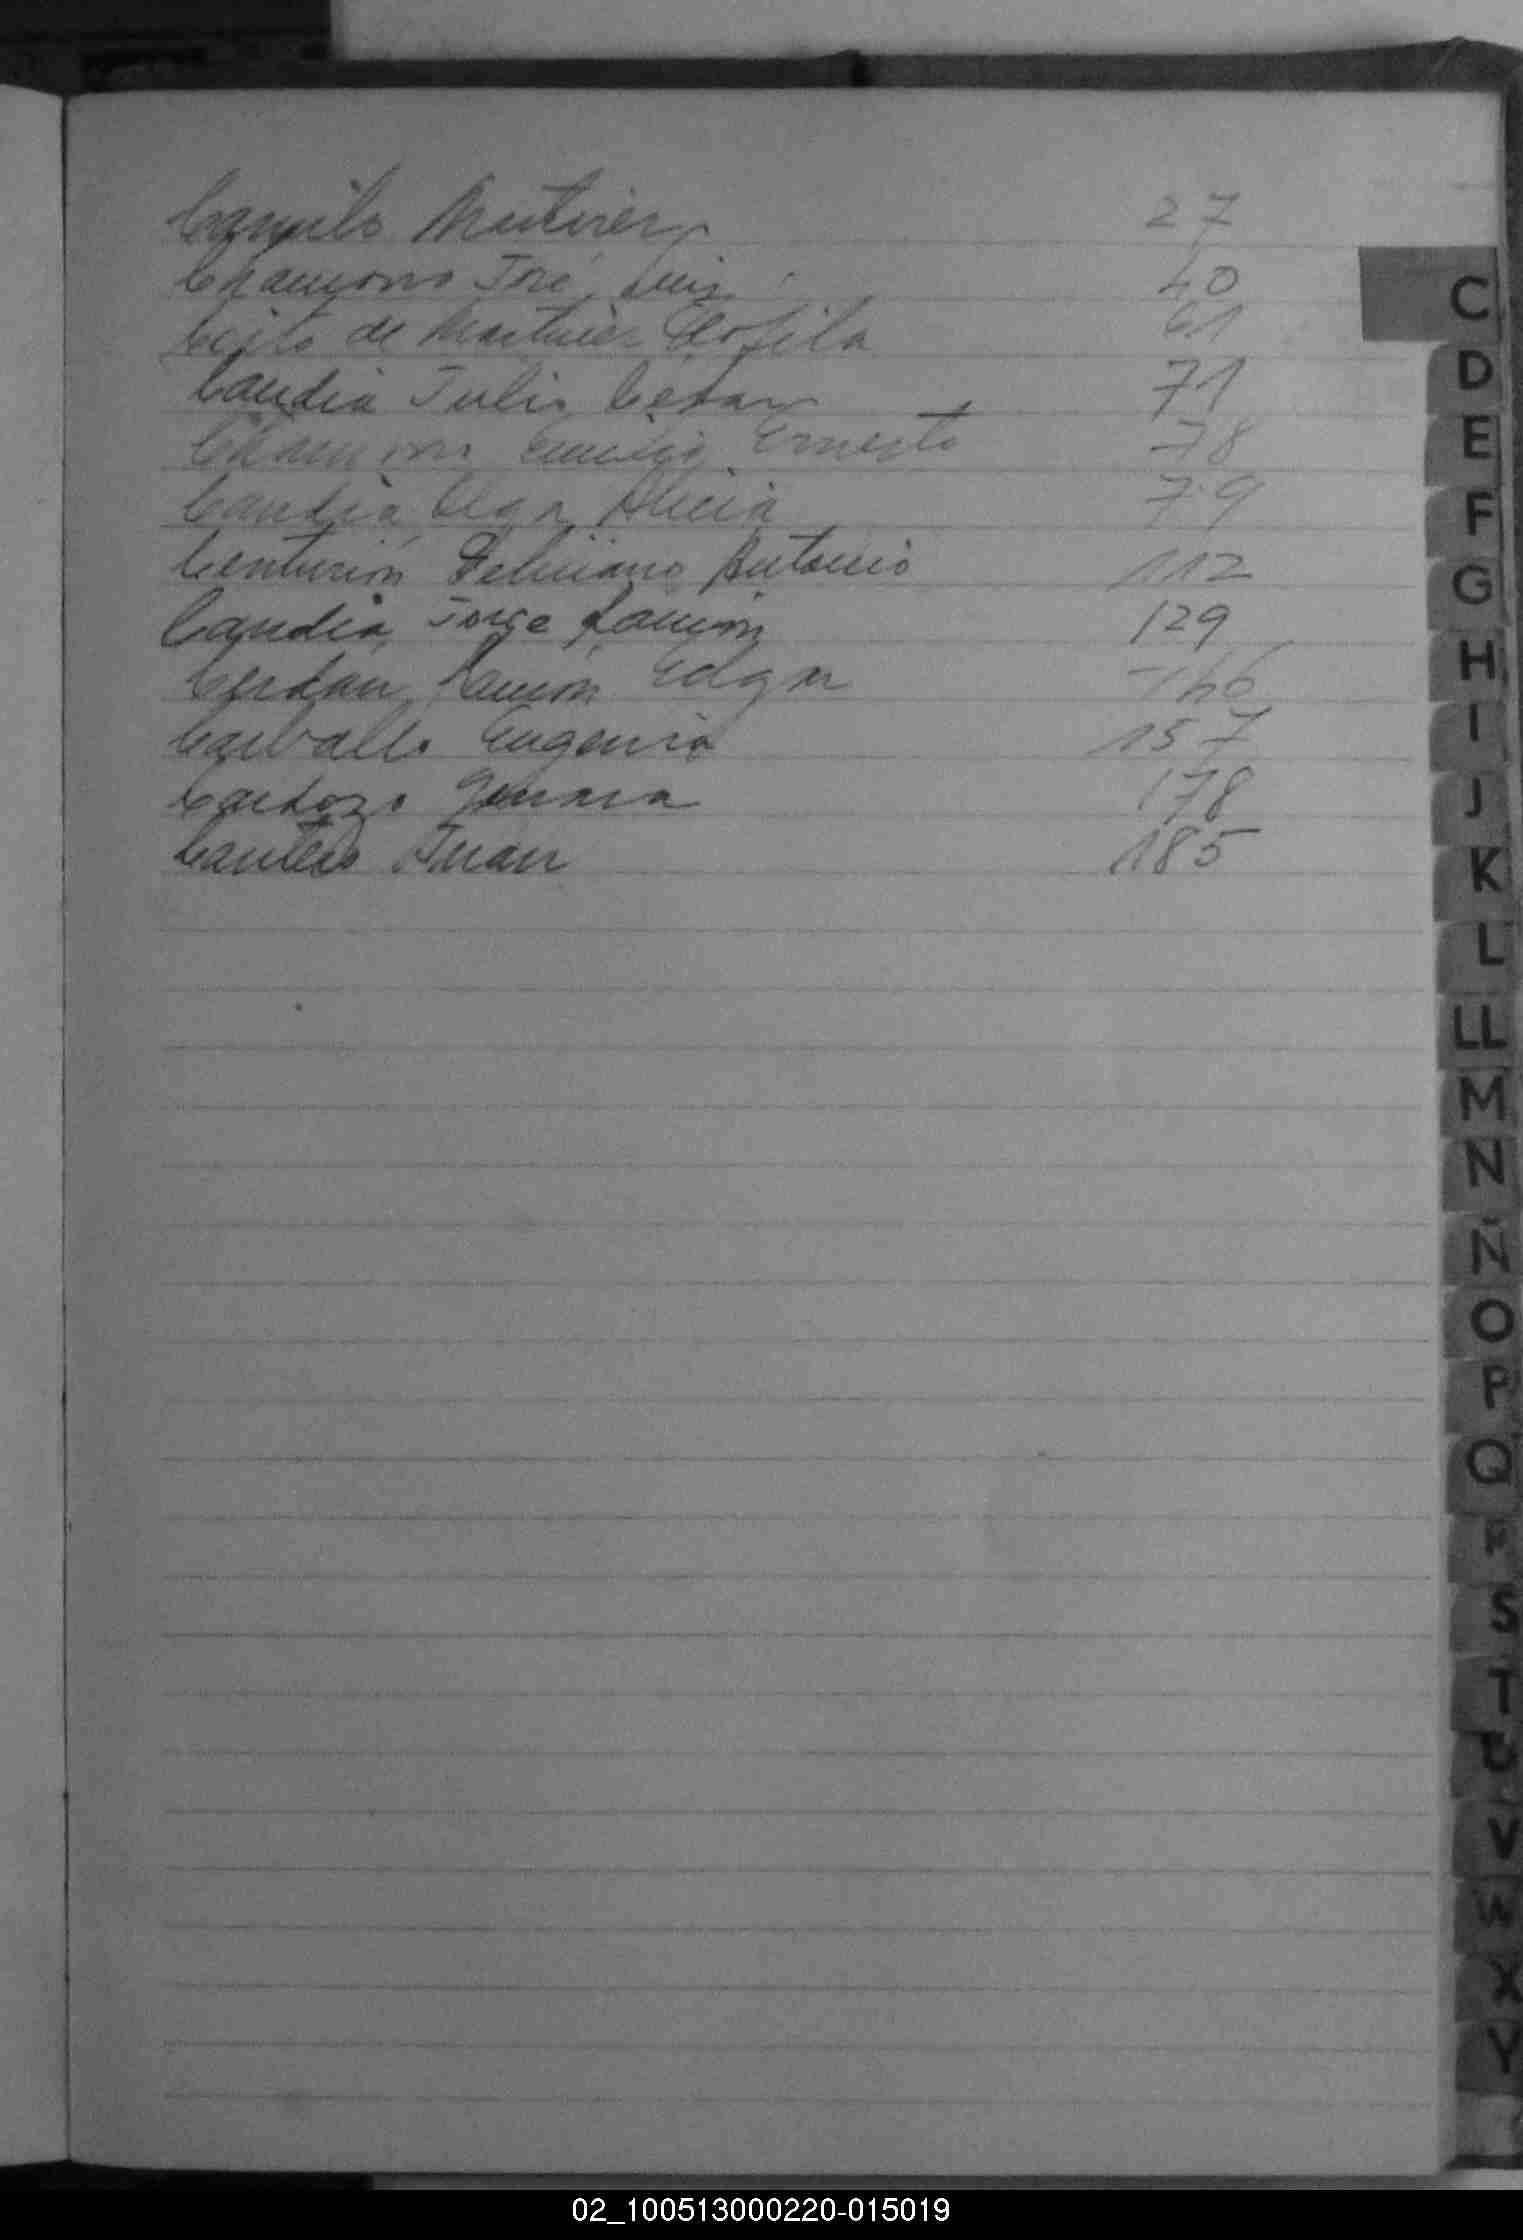 Camilo Martinez 27
Chamorro José Luis 40
de Martinez 61
Candia Julio César 71
Chamorro Emilio Ernesto 78
Candia Olga Alicia 79
Centurión Feliciano Antonio 112
Candia Jorge Ramón 129
Ramón Edgar 146
Carballo Eugenia 157
Cardozo 178
Cantero Juan 185
C
D
E
F
G
H
I
J
K
L
LL
M
N
Ñ
O
P
Q
R
S
T
U
V
W
X
Y
02_100513000220-015019